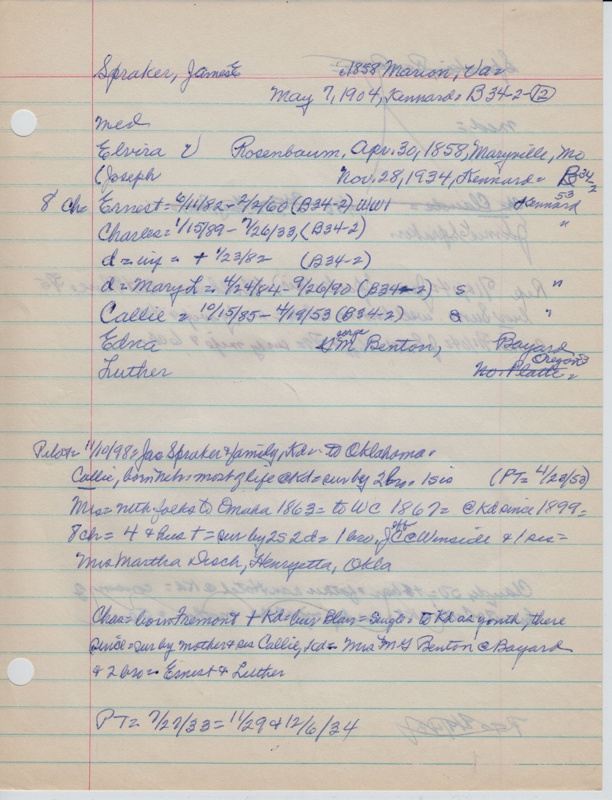 Spraker, James E c1858 Marion, Va=
May 7, 1904, Kennard= B34-2-12
med
Elvira V Rosenbaum, Apr. 30, 1858, Maryville, Mo
(Joseph Nov. 28, 1934, Kennard= B34-2
8 Ch= Ernest= 6/11/82-2/2/60 (B34-2) WW1 Kennard 53
Charles= 1/15/89-7/26/33, (B34-2) "
d= inf= + 1/23/82 (B34-2)
d= Mary L= 4/24/84-9/26/90 (B34-2) s "
Callie= 10/15/85-4/19/53 (B34-2) "
Edna M Benton, Bayard
Luther No. Platte= Oregon 53
Pilot= 11/10/98= Jas Spraker & family, Kd= to Oklahoma=
Callie, born Nebr= most of life @ Kd= sur by 2 bro= 1 sis (PT= 4/23/53)
Mrs= with folks to Omaha 1863= to WC 1867= @ Kd since 1899=
8 ch= 4 & hus += sur by 2s 2d= 1 bro, J C C Winside & 1 sis=
Mrs Martha Disch, Henryetta, Okla
Chas= born Fremont + Kd= bur Blair= Single= to Kd as youth, there
since= sur by mother & sis Callie, Kd= Mrs M G Benton @ Bayard
& 2 bro= Ernest & Luther
PT= 7/27/33= 11/29 & 12/6/34